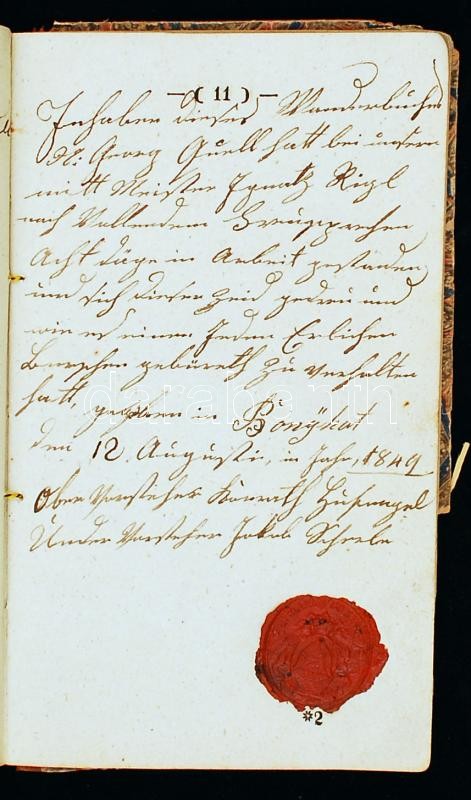 — ( 11 ) —
Inhaber dieses Wanderbuches
H: Georg Quell hatt bei unsern
mitt Meister Ignatz Rigl
nach Vollendem
Acht Däge in Arbeit gestanden
und sich dieser Zeid gedreu und
wie es einem Jeden Erlichen
Burschen gebüreth zu verhalten
hatt geschen in Bonÿhat
den 12 Augusti, in Jahr, 1849
Ober Vorsteher Konrath Hufnagel
Under Vorsteher Jakob Scherle
darabanth
*2